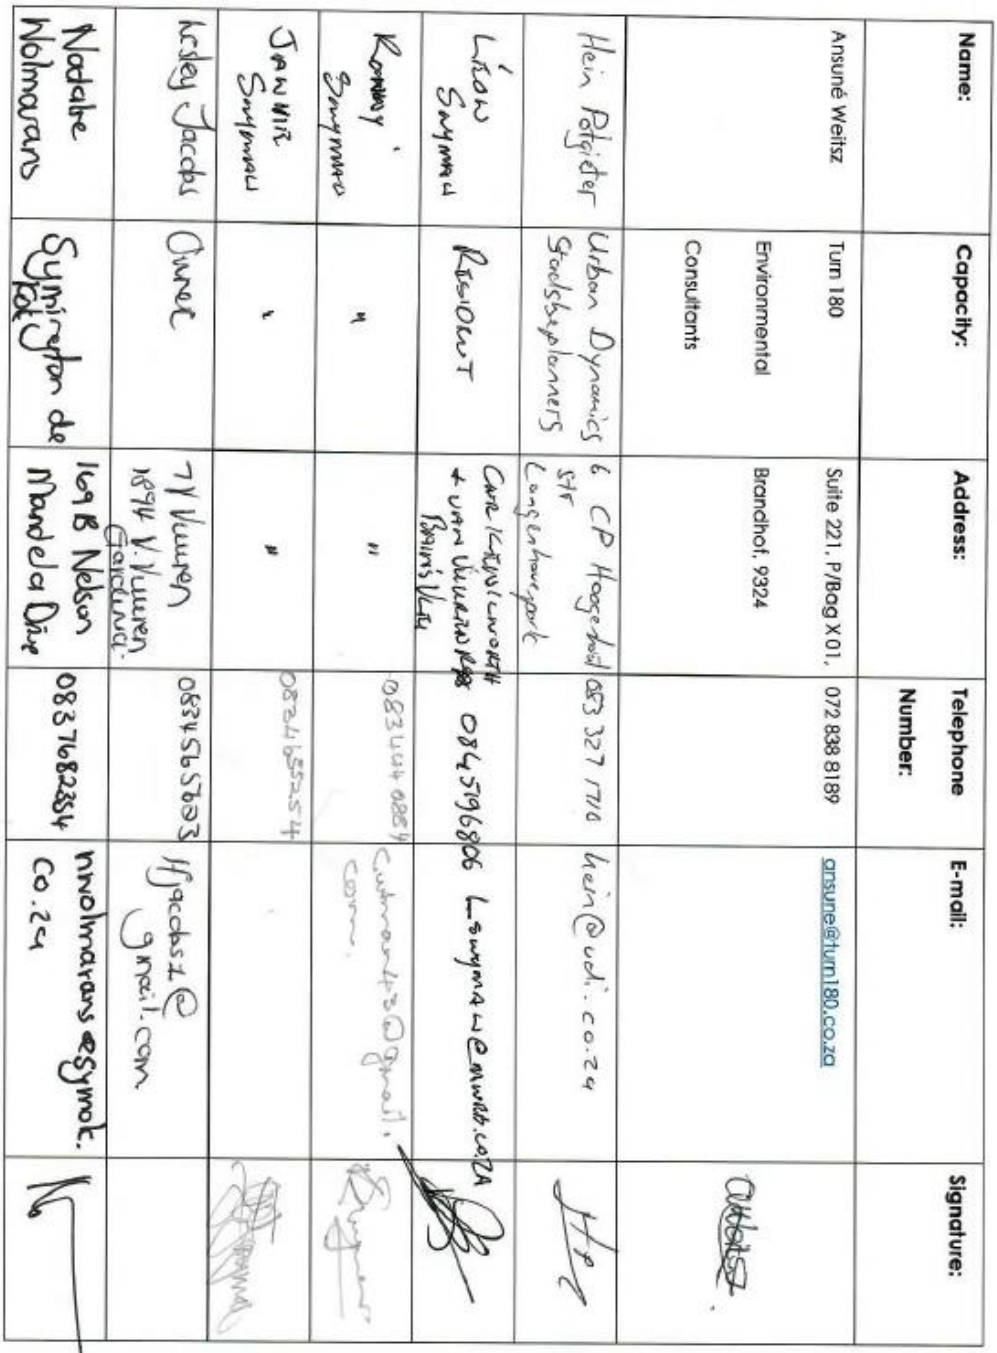 Name: Capacity: Address: Telephone Number: E-mail: Signature:
Ansuné Weitsz Turn 180 Environmental Consultants Suite 221, P/Bag X01, Brandhof, 9324 072 838 8189 ansune@turn180.co.za
Hein Potgieter Urban Dynamics Stadsbeplanners 6 CP Hoogenhout Str Langenhovenpark 083 327 1710 hein@udi.co.za
Snyman Resident + van Vuuren 0845196806
Snyman " " 083444 0884 @gmail.com.
Snyman " " 0834655254
Lesley Jacobs Owner 7 V Vuuren V. Vuuren Gardenia. 0834565623 lfjacobs1@gmail.com
Wolmarans Symington de Kok 169B Nelson Mandela Drive 0837682354 nwolmarans@symok.co.za